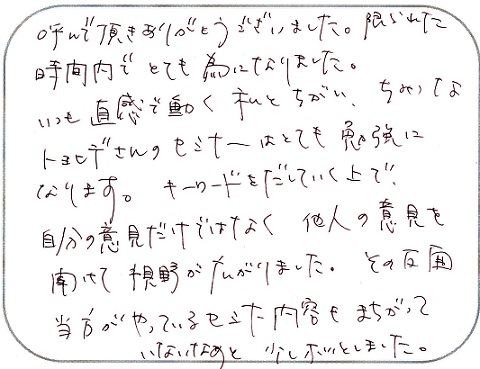 呼んで頂きありがとうございました。限られた
時間内でとても為になりました。
いつも直感で動く私とちがい、ちみつな
トヨヒデさんのセミナーはとても勉強に
なります。キーワードをだしていく上で、
自分の意見だけではなく他人の意見を
聞けて視野が広がりました。その反面
当方がやっているセミナー内容もまちがって
いないなあと少しホッとしました。